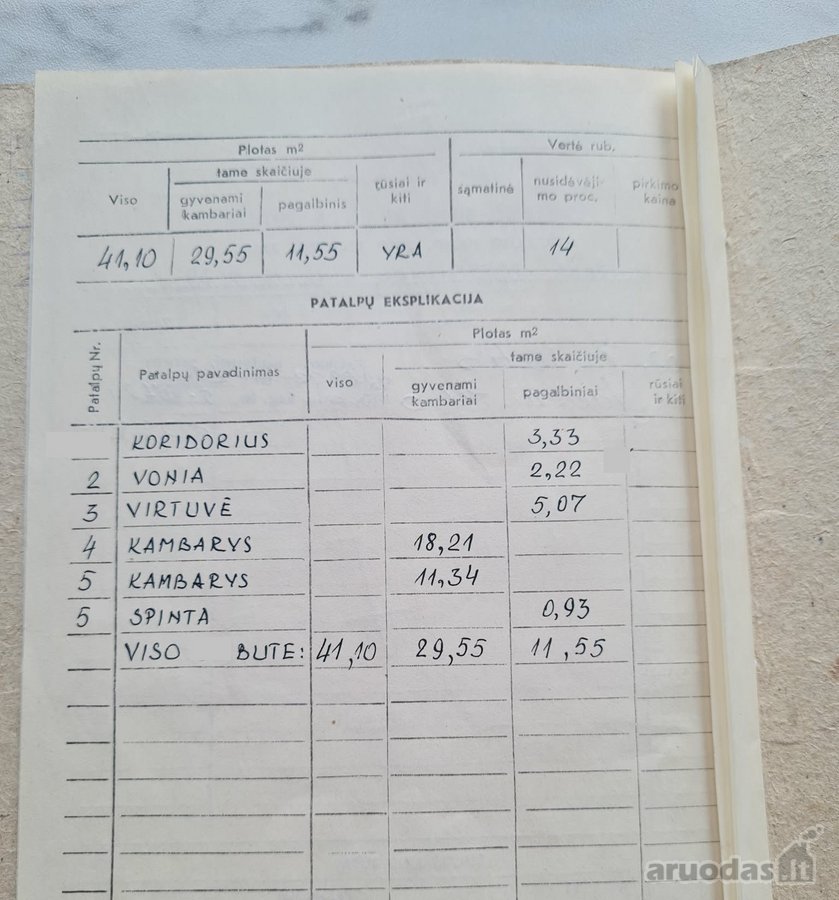 Plotas m2 Vertė rub.
tame skaičiuje
Viso gyvenami kambariai pagalbinis rūsiai ir kiti sąmatinė nusidėvėji- mo proc. pirkimo kaina
41,10 29,55 11,55 YRA 14
PATALPŲ EKSPLIKACIJA
Patalpų Nr. Patalpų pavadinimas Plotas m2
tame skaičiuje
viso gyvenami kambariai pagalbiniai rūsiai ir kiti
KORIDORIUS 3,33
2 VONIA 2,22
3 VIRTUVĖ 5,07
4 KAMBARYS 18,21
5 KAMBARYS 11,34
5 SPINTA 0,93
VISO BUTE: 41,10 29,55 11,55
aruodas.lt